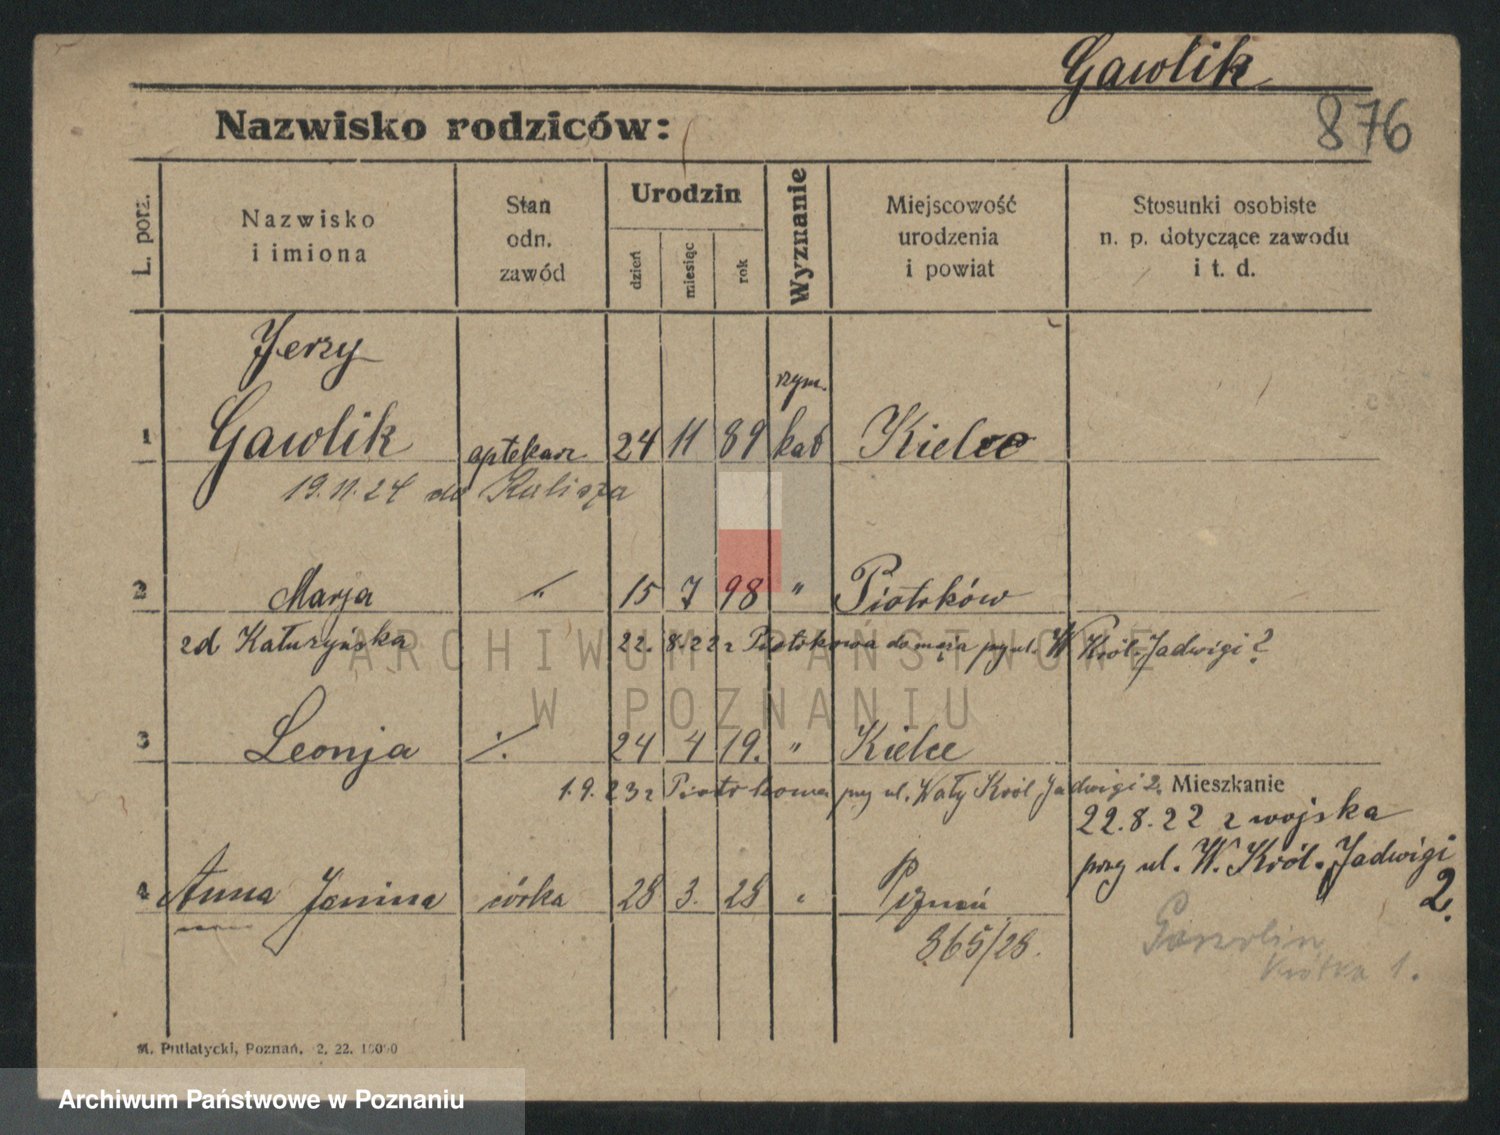 Gawlik
876
Nazwisko rodziców:
L. porz.
Nazwisko
i imiona
Stan
odn.
zawód
Urodzin
dzień
miesiąc
rok
Wyznanie
Miejscowość
urodzenia
i powiat
Stosunki osobiste
n. p. dotyczące zawodu
i t. d.
Jerzy
rzym.
1 Gawlik aptekarz 24 11 89 kat Kielce
19.11.24 do Kalisza
2 Marja " 15 7 98 " Piotrków
zd Kałużyńska 22. 8.22 z Piotrkowa do męża przy ul. W Król. Jadwigi 2
3 Leonja ·/. 24 4 19. " Kielce
1.9.23 z Piotrkowa przy ul. Wały Król Jadwigi 2.
Mieszkanie
22.8.22 z wojska
przy ul. W. Król. Jadwigi
2.
4 Anna Janina córka 28 3. 28 " Poznań
865/28.
Krótka 1.
M. Putiatycki, Poznań. 2, 22. 10000
ARCHIWUM PAŃSTWOWE
W POZNANIU
Archiwum Państwowe w Poznaniu